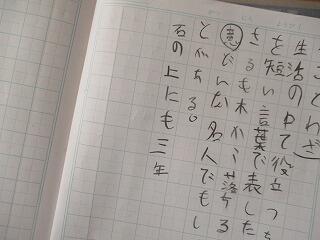 ことわざ)
生活の中で役立つち
を短い言葉で表した
さるも木から落ちる
意どんな名人でもし
とがある。
石の上にも三年